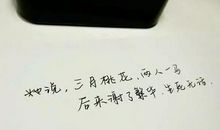 她说，三月桃花，两人一马
后来谢了繁华，生死无话